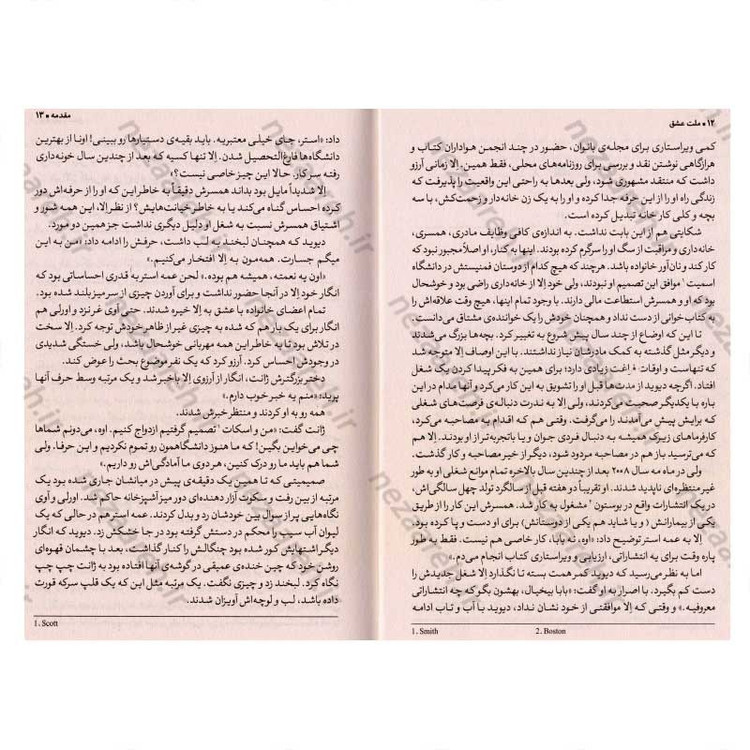 ۱۲ • ملت عشق
کمی ویراستاری برای مجله‌ی بانوان، حضور در چند انجمن هواداران کتاب و
هرازگاهی نوشتن نقد و بررسی برای روزنامه‌های محلی، فقط همین. اِلا زمانی آرزو
داشت که منتقد مشهوری شود، ولی بعدها به راحتی این واقعیت را پذیرفت که
زندگی راه او را از این حرفه جدا کرده و او را به یک زن خانه‌دار و زحمت‌کش، با سه
بچه و کلی کار خانه تبدیل کرده است.
شکایتی هم از این بابت نداشت. به اندازه‌ی کافی وظایف مادری، همسری،
خانه‌داری و مراقبت از سگ او را سرگرم کرده بودند. اینها به کنار، او اصلاً مجبور نبود که
کار کند و نان‌آور خانواده باشد. هرچند که هیچ کدام از دوستان فمنیستش در دانشگاه
اسمیت¹ موافق این تصمیم او نبودند، ولی خود اِلا از خانه‌داری راضی بود و خوشحال
بود که او و همسرش استطاعت مالی دارند. با وجود تمام اینها، هیچ وقت علاقه‌اش را
به کتاب‌خوانی از دست نداد و همچنان خودش را یک خواننده‌ی مشتاق می‌دانست.
تا این که اوضاع از چند سال پیش شروع به تغییر کرد. بچه‌ها بزرگ می‌شدند
و دیگر مثل گذشته به کمک مادرشان نیاز نداشتند. با این اوصاف اِلا متوجه شد
که تنهاست و اوقات فراغت زیادی دارد؛ برای همین به فکر پیدا کردن یک شغل
افتاد. اگرچه دیوید از مدت‌ها قبل او را تشویق به این کار می‌کرد و آنها مدام در این
باره با یکدیگر صحبت می‌کردند، ولی اِلا به ندرت دنباله‌ی فرصت‌های شغلی
که برایش پیش می‌آمدند را می‌گرفت. وقتی هم که اقدام به مصاحبه می‌کرد،
کارفرماهای زیرک همیشه به دنبال فردی جوان و یا باتجربه‌تر از او بودند. اِلا هم
که می‌ترسید باز هم در مصاحبه مردود شود، دیگر از خیر مصاحبه و کار گذشت.
ولی در ماه مه سال ۲۰۰۸ بعد از چندین سال بالاخره تمام موانع شغلی او به طور
غیرمنتظره‌ای ناپدید شدند. او تقریباً دو هفته قبل از سالگرد تولد چهل سالگی‌اش،
در یک انتشارات واقع در بوستون² مشغول به کار شد. همسرش این کار را از طریق
یکی از بیمارانش (و یا شاید هم یکی از دوستانش) برای او دست و پا کرده بود.
اِلا به عمه استر توضیح داد: «اوه، نه بابا، کار خاصی هم نیست. فقط به طور
پاره وقت برای یه انتشاراتی، ارزیابی و ویراستاری کتاب انجام می‌دم.»
اما به نظر می‌رسید که دیوید کمر همت بسته تا نگذارد اِلا شغل جدیدش را
دست کم بگیرد. با اصرار به او گفت: «بابا بیخیال، بهشون بگو که چه انتشاراتی
معروفیه.» و وقتی که اِلا موافقتی از خود نشان نداد، دیوید با آب و تاب ادامه
1. Smith 2. Boston
مقدمه • ۱۳
داد: «استر، جای خیلی معتبریه. باید بقیه‌ی دستیارها رو ببینی! اونا از بهترین
دانشگاه‌ها فارغ‌التحصیل شدن. اِلا تنها کسیه که بعد از چندین سال خونه‌داری
رفته سر کار. حالا این چیز خاصی نیست؟»
اِلا شدیداً مایل بود بداند همسرش دقیقاً به خاطر این که او را از حرفه‌اش دور
کرده احساس گناه می‌کند یا به خاطر خیانت‌هایش؟ از نظر اِلا، این همه شور و
اشتیاق همسرش نسبت به شغل او دلیل دیگری نداشت جز همین دو مورد.
دیوید که همچنان لبخند به لب داشت، حرفش را ادامه داد: «من به این
میگم جسارت. همه‌مون به اِلا افتخار می‌کنیم.»
«اون یه نعمته، همیشه هم بوده.» لحن عمه استر به قدری احساساتی بود که
انگار خود اِلا در آنجا حضور نداشت و برای آوردن چیزی از سر میز بلند شده بود.
تمام اعضای خانواده با عشق به اِلا خیره شدند. حتی آوی غرنزد و اورلی هم
انگار برای یک بار هم که شده به چیزی غیر از ظاهر خودش توجه کرد. اِلا سخت
در تلاش بود تا به خاطر این همه مهربانی خوشحال باشد، ولی خستگی شدیدی
در وجودش احساس کرد. آرزو کرد که یک نفر موضوع بحث را عوض کند.
دختر بزرگترش ژانت، انگار از آرزوی اِلا باخبر شد و یک مرتبه وسط حرف آنها
پرید: «منم یه خبر خوب دارم.»
همه رو به او کردند و منتظر خبرش شدند.
ژانت گفت: «من و اسکات¹ تصمیم گرفتیم ازدواج کنیم. اوه، می‌دونم شماها
چی می‌خواین بگین! که ما هنوز دانشگاهمون رو تموم نکردیم و این حرفا. ولی
شما هم باید ما رو درک کنین، هر دوی ما آمادگی‌اش رو داریم.»
صمیمیتی که تا همین یک دقیقه‌ی پیش در میانشان جاری شده بود یک
مرتبه از بین رفت و سکوت آزار دهنده‌ای دور میز آشپزخانه حاکم شد. اورلی و آوی
نگاه‌هایی پر از سوال بین خودشان رد و بدل کردند. عمه استر هم در حالی که یک
لیوان آب سیب را محکم در دستش گرفته بود در جا خشکش زد. دیوید که انگار
دیگر اشتهایش کور شده بود چنگالش را کنار گذاشت، بعد با چشمان قهوه‌ای
روشن خود که چین خنده‌ی عمیقی در گوشه‌ی آنها افتاده بود به ژانت چپ چپ
نگاه کرد. لبخند زد و چیزی نگفت. یک مرتبه مثل این که یک قلپ سرکه قورت
داده باشد، لب و لوچه‌اش آویزان شدند.
1. Scott